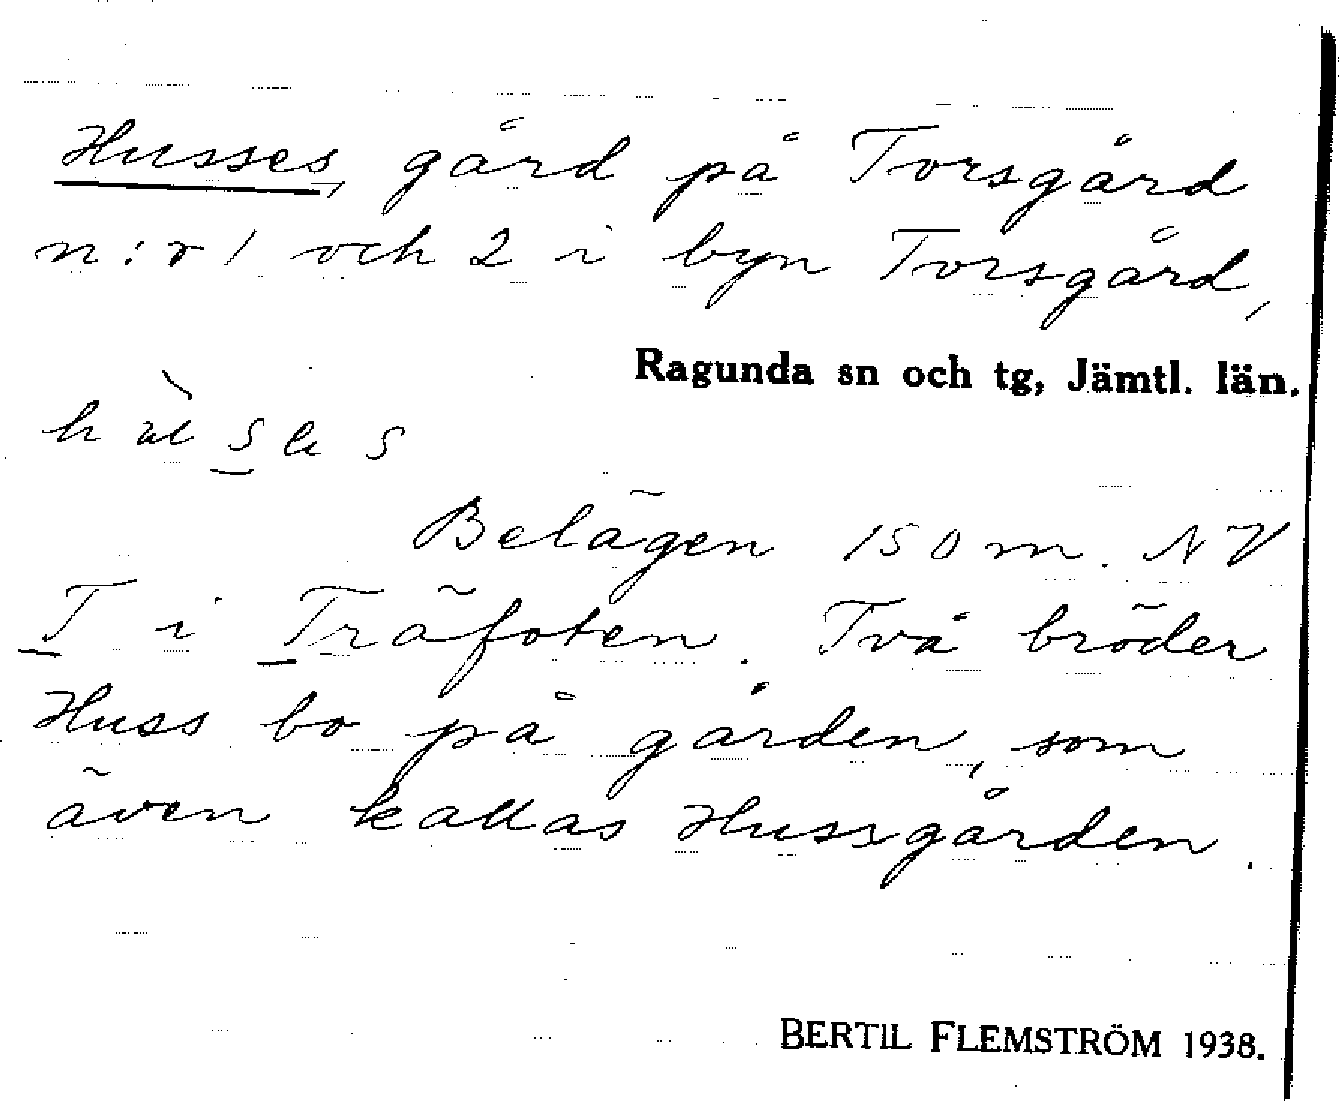 Husses, gård på Torsgård
n:r 1 och 2 i byn Torsgård,
Ragunda sn och tg, Jämtl. län.
Belägen 150 m. NV
T i Träfoten. Två bröder
Huss bo på gården, som
även kallas Hussgården.
BERTIL FLEMSTRÖM 1938.